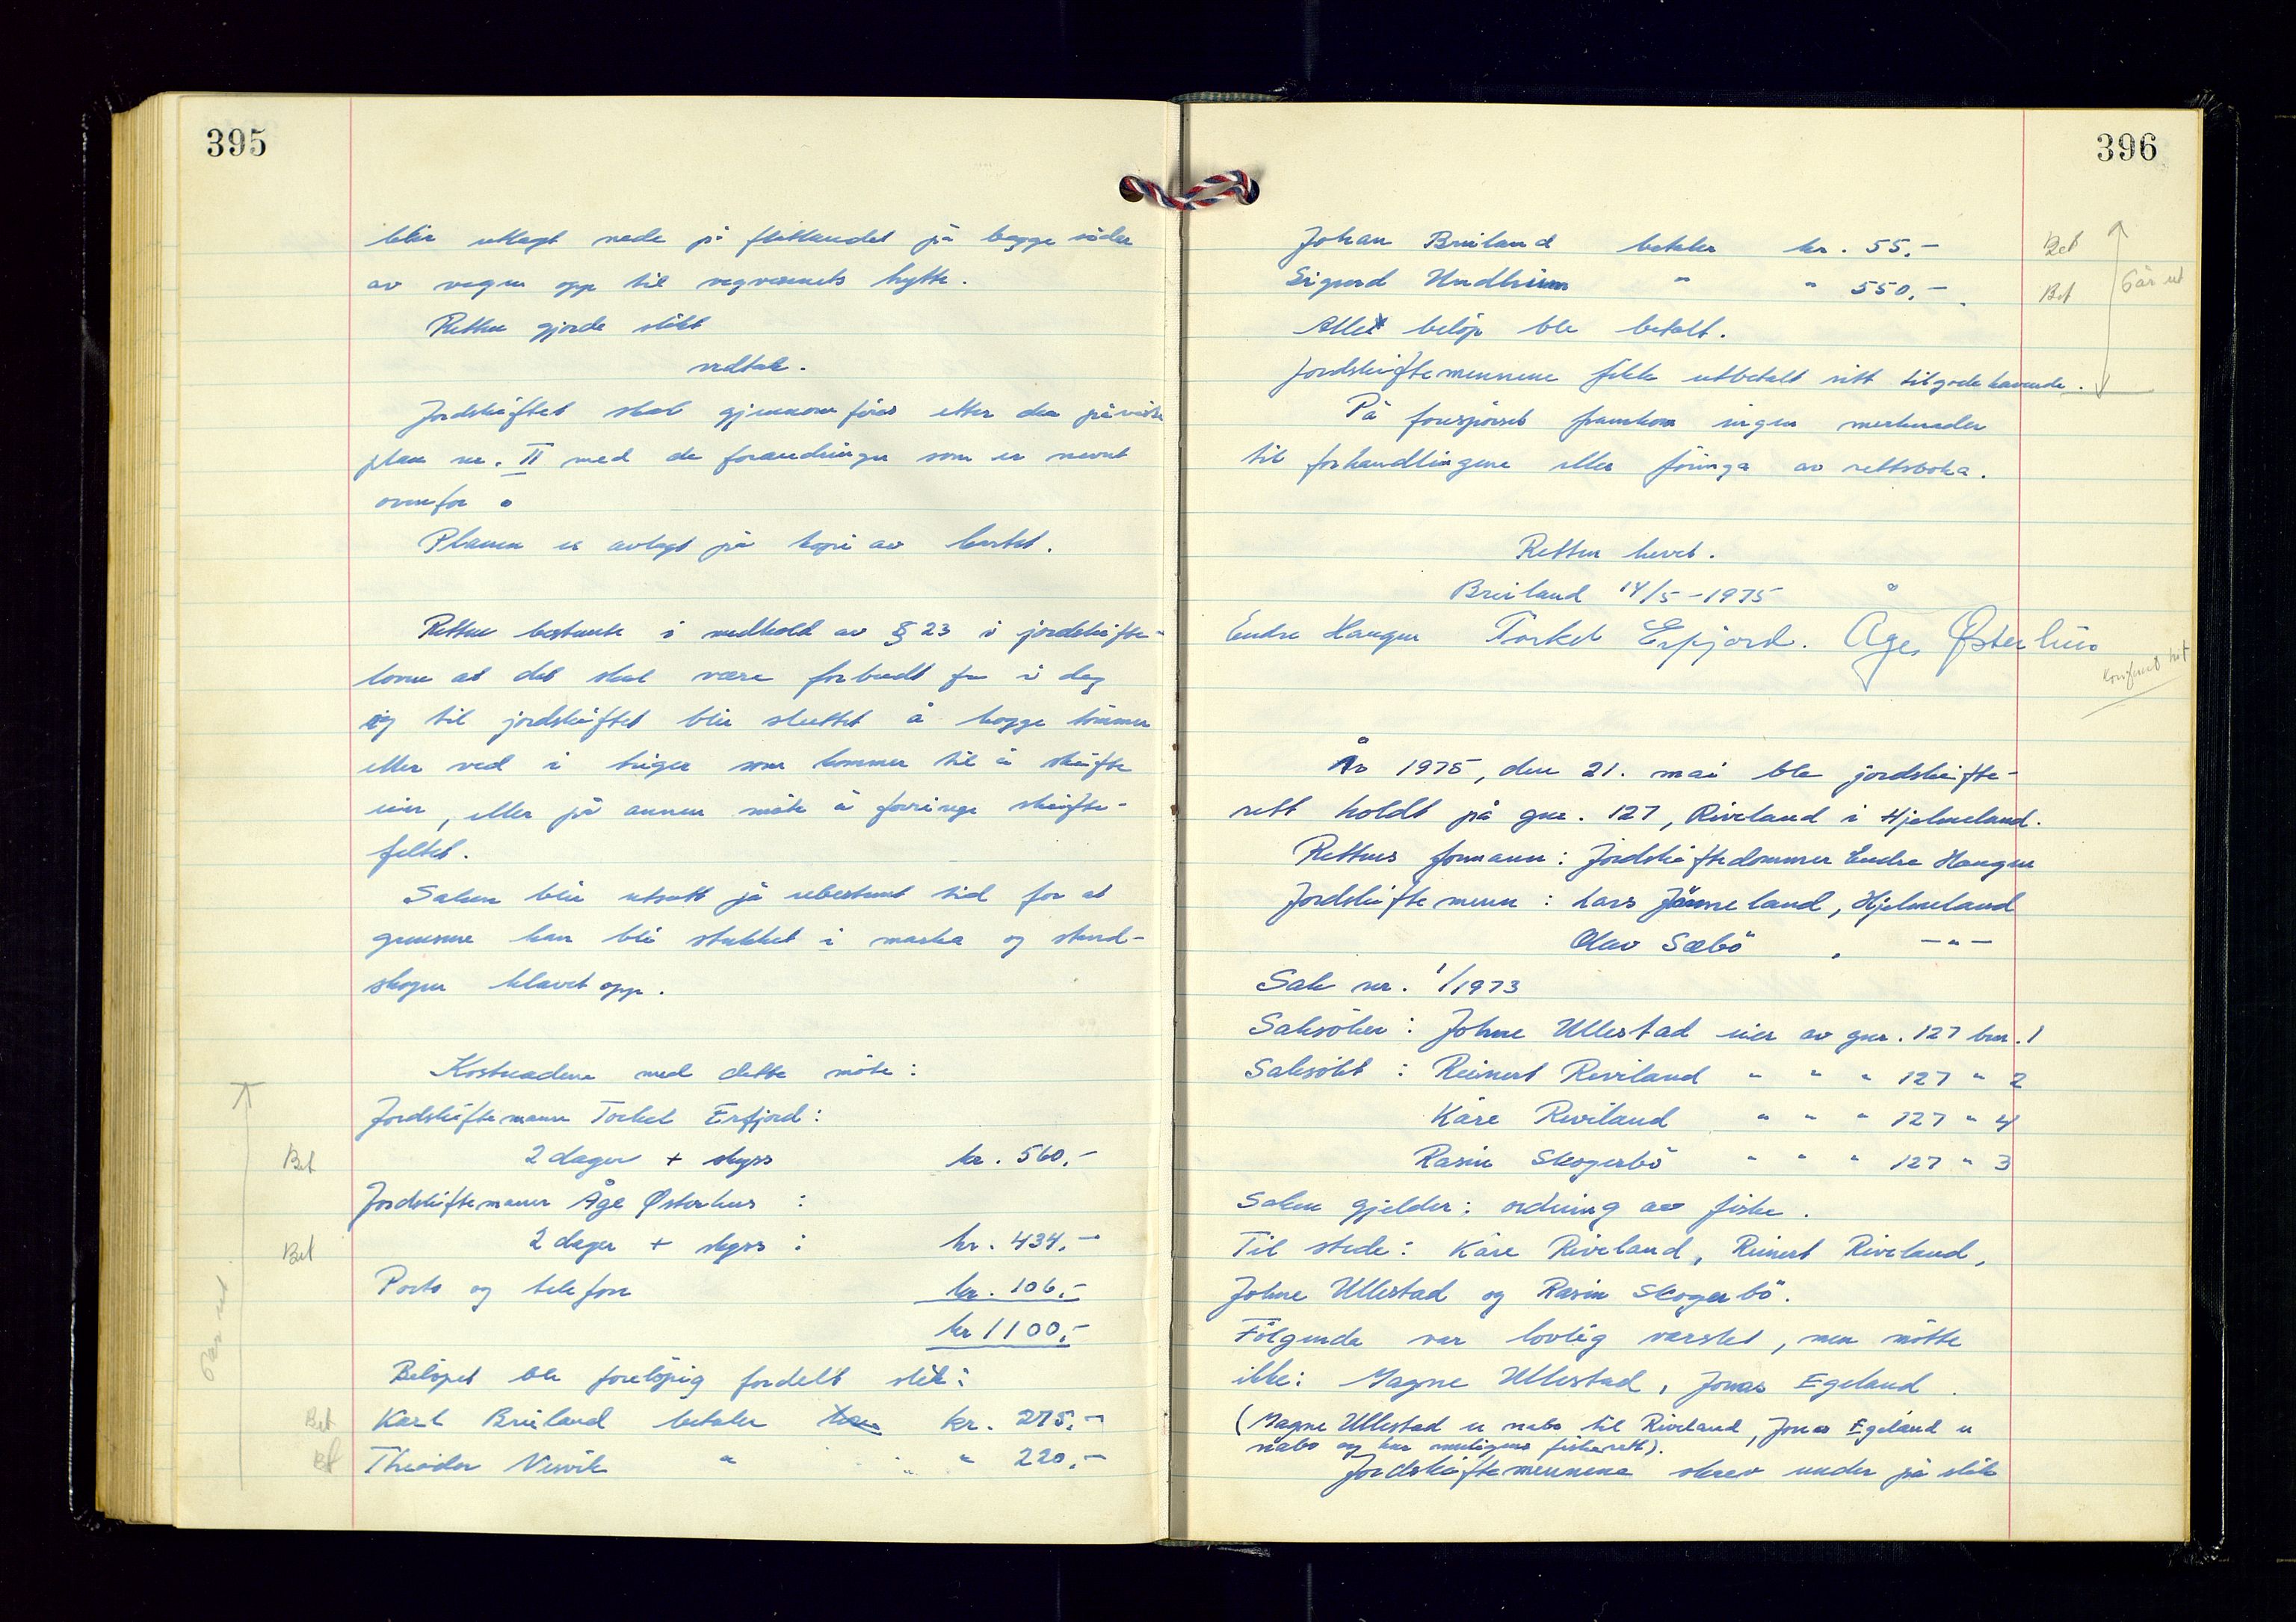 395
blir utlagt nede på flatlandet på begge sider
av vegen opp til vegvesenets hytte.
Retten gjorde slikt
vedtak.
Jordskiftet skal gjennomföres etter den påviste
plan nr. II med de forandringer som er nevnt
ovenfor.
Planen er avlagt på kopi av kartet.
Retten bestemte i medhold av § 23 i jordskifte-
loven at det skal være forbudt fra i dag
og til jordskiftet blir sluttet å hogge tömmer
eller ved i teiger som kommer til å skifte
eier, eller på annen måte å forringe skifte-
feltet.
Saken blir utsatt på ubestemt tid for at
grensene kan bli stukket i marka og stend-
skogen klavet opp.
Kostnadene med dette möte:
Jordskiftemann Torkel Erfjord:
Bet 2 dager + skyss kr. 560.-
Jordskiftemann Åge Østerhus :
Bet 2 dager + skyss : kr. 434.-
Porto og telefon kr. 106.-
kr 1100.-
Belöpet ble forelöpig fordelt slik:
Bet Karl Breiland betaler kr. 275.-
Bet Theodor Nesvik " " 220.-
Går ut
396
Johan Breiland betaler kr. 55.- Bet
Sigurd Undheim " " 550.- Bet
Går ut
Alle belöp ble betalt.
Jordskiftemennene fikk utbetalt sitt tilgodehavende.
På forespörsel framkom ingen merknader
til forhandlingene eller föringa av rettsboka.
Retten hevet.
Breiland 14/5-1975
Endre Haugen Torkel Erfjord. Åge Østerhus
Konferert hit
År 1975, den 21. mai ble jordskifte-
rett holdt på gnr. 127, Riveland i Hjelmeland.
Rettens formann: Jordskiftedommer Endre Haugen
Jordskiftemenn : Lars Jönneland, Hjelmeland
Olav Sæbö , -"-
Sak nr. 1/1973
Saksöker: Johne Ullestad eier av gnr. 127 bnr. 1
Saksökt : Reinert Riveland " " " 127 " 2
Kåre Riveland " " " 127 " 4
Rasin Skogerbö " " " 127 " 3
Saken gjelder: ordning av fiske.
Til stede: Kåre Riveland, Reinert Riveland,
Johne Ullestad og Rasin Skogerbö.
Fölgende var lovlig varslet, men mötte
ikke: Magne Ullestad, Jonas Egeland.
(Magne Ullestad er nabo til Riveland, Jonas Egeland er
nabo og har muligens fiskerett).
Jordskiftemennene skrev under på slik